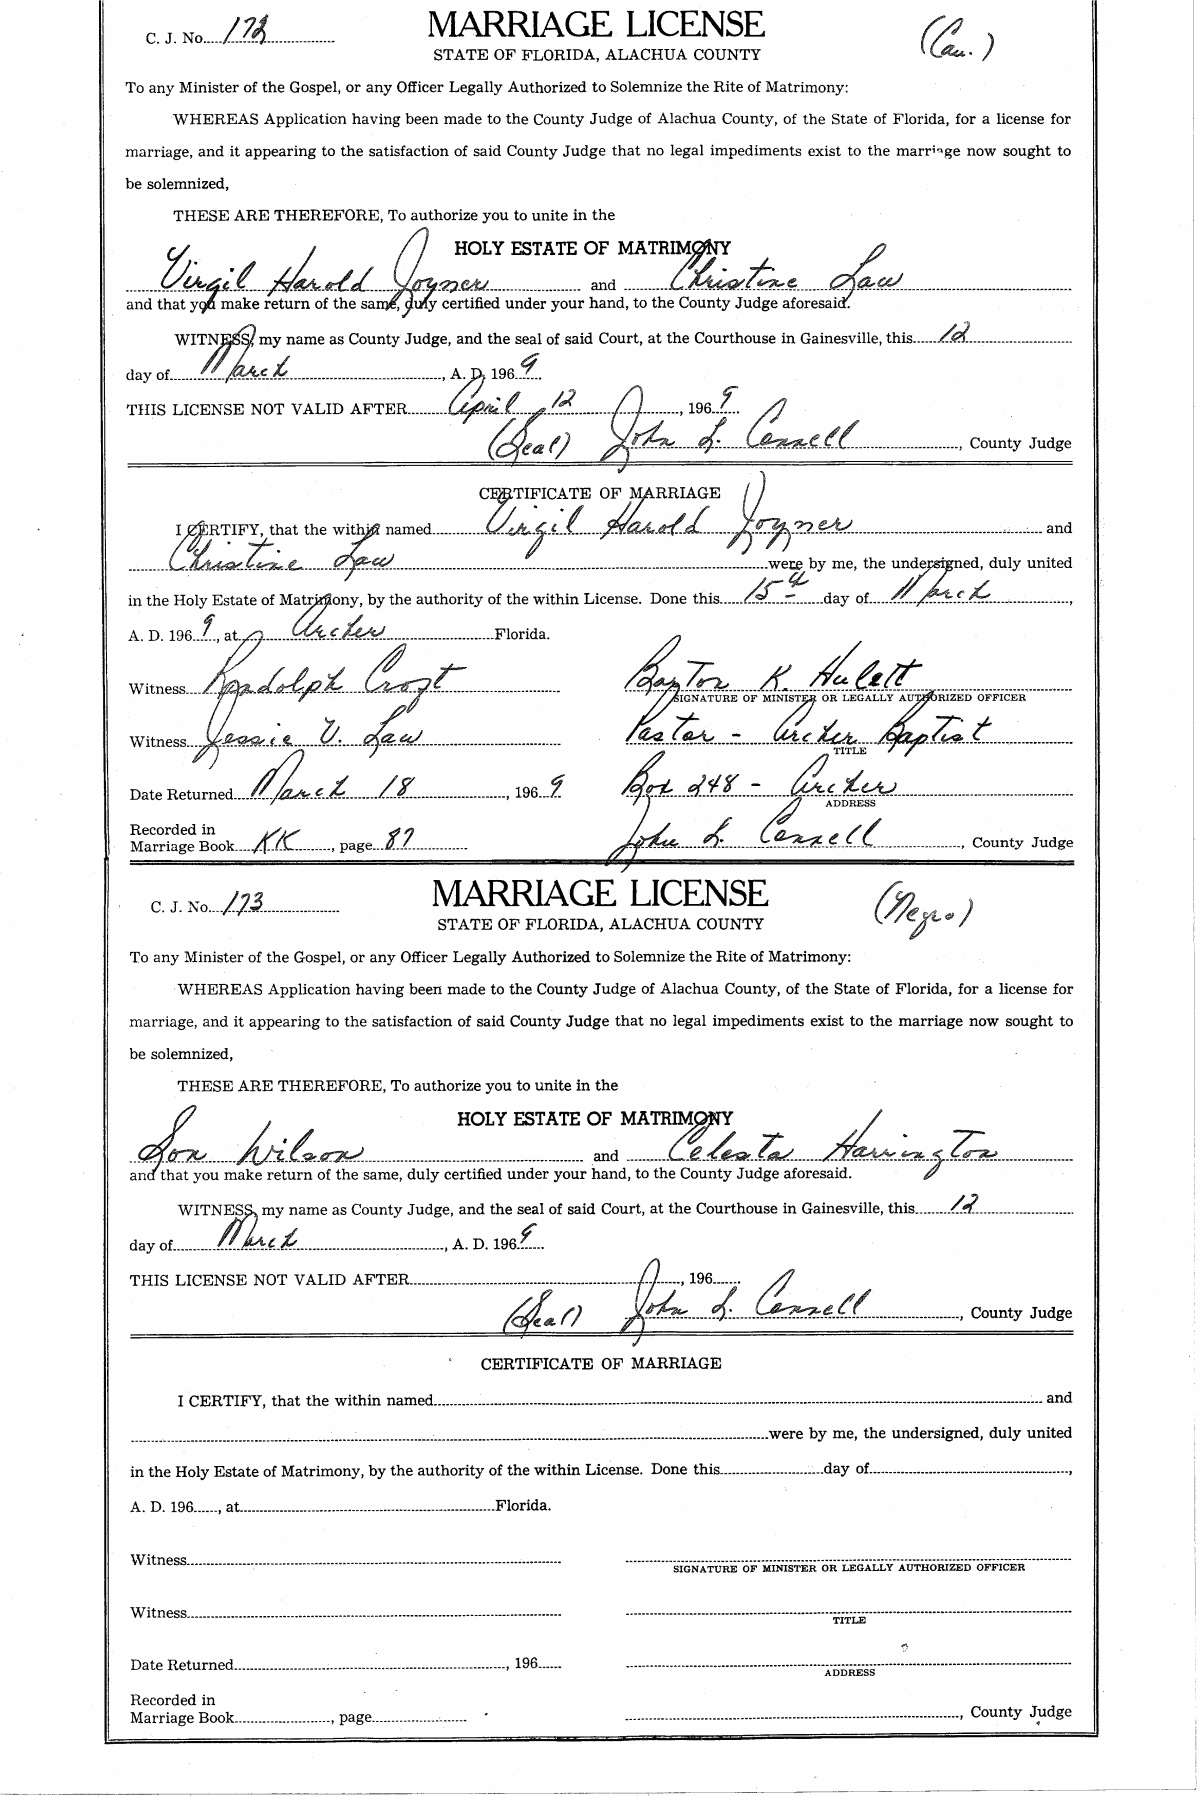 C. J. No. 172
MARRIAGE LICENSE
(Cau.)
STATE OF FLORIDA, ALACHUA COUNTY
To any Minister of the Gospel, or any Officer Legally Authorized to Solemnize the Rite of Matrimony:
WHEREAS Application having been made to the County Judge of Alachua County, of the State of Florida, for a license for
marriage, and it appearing to the satisfaction of said County Judge that no legal impediments exist to the marriage now sought to
be solemnized,
THESE ARE THEREFORE, To authorize you to unite in the
HOLY ESTATE OF MATRIMONY
Virgil Harold Joyner and Christine Law
and that you make return of the same, duly certified under your hand, to the County Judge aforesaid.
WITNESS, my name as County Judge, and the seal of said Court, at the Courthouse in Gainesville, this 12
day of March, A. D. 1969
THIS LICENSE NOT VALID AFTER April 12, 1969
(Seal) John L. Connell, County Judge
CERTIFICATE OF MARRIAGE
I CERTIFY, that the within named Virgil Harold Joyner and
Christine Law were by me, the undersigned, duly united
in the Holy Estate of Matrimony, by the authority of the within License. Done this 15th day of March,
A. D. 1969, at Archer Florida.
Witness Randolph Croft
Baxton K. Hulett
SIGNATURE OF MINISTER OR LEGALLY AUTHORIZED OFFICER
Witness Jessie V. Law
Pastor - Archer Baptist
TITLE
Date Returned March 18, 1969
Box 248 - Archer
ADDRESS
Recorded in
Marriage Book KK, page 87
John L. Connell, County Judge
C. J. No. 173
MARRIAGE LICENSE
(Negro)
STATE OF FLORIDA, ALACHUA COUNTY
To any Minister of the Gospel, or any Officer Legally Authorized to Solemnize the Rite of Matrimony:
WHEREAS Application having been made to the County Judge of Alachua County, of the State of Florida, for a license for
marriage, and it appearing to the satisfaction of said County Judge that no legal impediments exist to the marriage now sought to
be solemnized,
THESE ARE THEREFORE, To authorize you to unite in the
HOLY ESTATE OF MATRIMONY
Son Wilson and Celesta Harrington
and that you make return of the same, duly certified under your hand, to the County Judge aforesaid.
WITNESS, my name as County Judge, and the seal of said Court, at the Courthouse in Gainesville, this 12
day of March, A. D. 1969
THIS LICENSE NOT VALID AFTER, 196
(Seal) John L. Connell, County Judge
CERTIFICATE OF MARRIAGE
I CERTIFY, that the within named and
were by me, the undersigned, duly united
in the Holy Estate of Matrimony, by the authority of the within License. Done this day of,
A. D. 196, at Florida.
Witness
SIGNATURE OF MINISTER OR LEGALLY AUTHORIZED OFFICER
Witness
TITLE
Date Returned, 196
ADDRESS
Recorded in
Marriage Book, page
, County Judge